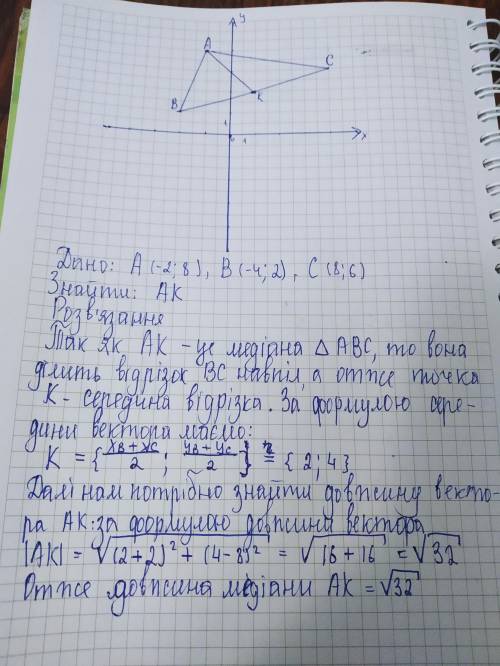 y
A
C
B
K
1
0 1
x
Дано: A (-2; 8), B (-4; 2), C (8; 6)
Знайти: AK
Розв'язання
Так як AK - це медіана △ ABC, то вона
ділить відрізок BC навпіл, а отже точка
K - середина відрізка. За формулою сере-
дини вектора маємо:
K = {(xB + xC)/2 ; (yB + yC)/2} = {2; 4}
Далі нам потрібно знайти довжину векто-
ра AK: за формулою довжини вектора
|AK| = √((2+2)² + (4-8)²) = √(16 + 16) = √32
Отже довжина медіани AK = √32